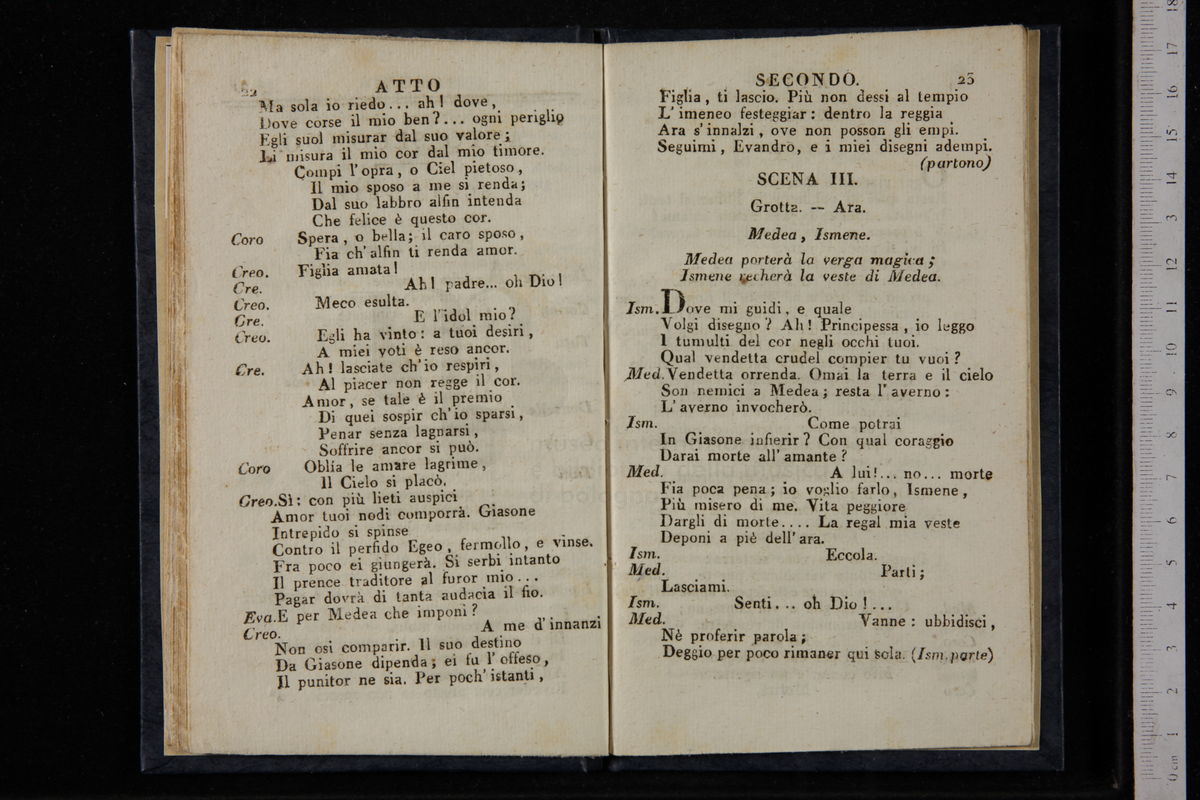 22 ATTO
Ma sola io riedo... ah! dove,
Dove corse il mio ben?... ogni periglio
Egli suol misurar dal suo valore;
Li misura il mio cor dal mio timore.
Compi l'opra, o Ciel pietoso,
Il mio sposo a me si renda;
Dal suo labbro alfin intenda
Che felice è questo cor.
Coro Spera, o bella; il caro sposo,
Fia ch'alfin ti renda amor.
Creo. Figlia amata!
Cre. Ah! padre... oh Dio!
Creo. Meco esulta.
Cre. E l'idol mio?
Creo. Egli ha vinto: a tuoi desiri,
A miei voti è reso ancor.
Cre. Ah! lasciate ch'io respiri,
Al piacer non regge il cor.
Amor, se tale è il premio
Di quei sospir ch'io sparsi,
Penar senza lagnarsi,
Soffrire ancor si può.
Coro Oblia le amare lagrime,
Il Cielo si placò.
Creo. Sì: con più lieti auspici
Amor tuoi nodi comporrà. Giasone
Intrepido si spinse
Contro il perfido Egeo, fermollo, e vinse.
Fra poco ei giungerà. Si serbi intanto
Il prence traditore al furor mio...
Pagar dovrà di tanta audacia il fio.
Eva. E per Medea che imponi?
Creo. A me d'innanzi
Non osi comparir. Il suo destino
Da Giasone dipenda; ei fu l'offeso,
Il punitor ne sia. Per poch'istanti,
SECONDO. 23
Figlia, ti lascio. Più non dessi al tempio
L'imeneo festeggiar: dentro la reggia
Ara s'innalzi, ove non posson gli empi.
Seguimi, Evandro, e i miei disegni adempi.
(partono)
SCENA III.
Grotta. -- Ara.
Medea, Ismene.
Medea porterà la verga magica;
Ismene recherà la veste di Medea.
Ism. Dove mi guidi, e quale
Volgi disegno? Ah! Principessa, io leggo
I tumulti del cor negli occhi tuoi.
Qual vendetta crudel compier tu vuoi?
Med. Vendetta orrenda. Omai la terra e il cielo
Son nemici a Medea; resta l'averno:
L'averno invocherò.
Ism. Come potrai
In Giasone infierir? Con qual coraggio
Darai morte all'amante?
Med. A lui!... no... morte
Fia poca pena; io voglio farlo, Ismene,
Più misero di me. Vita peggiore
Dargli di morte.... La regal mia veste
Deponi a piè dell'ara.
Ism. Eccola.
Med. Parti;
Lasciami.
Ism. Senti... oh Dio!...
Med. Vanne: ubbidisci,
Nè proferir parola;
Deggio per poco rimaner qui sola. (Ism. parte)
0 cm 1 2 3 4 5 6 7 8 9 10 11 12 13 14 15 16 17 18